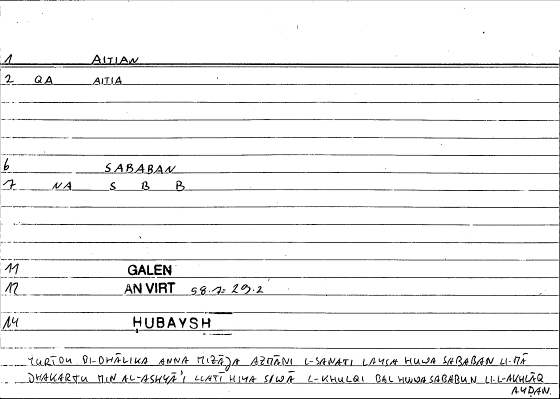 1 AITIAN
2 QA AITIA
6 SABABAN
7 NA S B B
11 GALEN
12 AN VIRT 58.7= 29.2
14 ḤUBAYSH
YURĪDU BI-DHĀLIKA ANNA MIZĀJA AZMĀNI L-SANATI LAYSA HUWA SABABAN LI-MĀ
DHAKARTU MIN AL-ASHYĀ'I LLATĪ HIYA SIWĀ L-KHULQI BAL HUWA SABABUN LI-L-AKHLĀQ
AYḌAN.